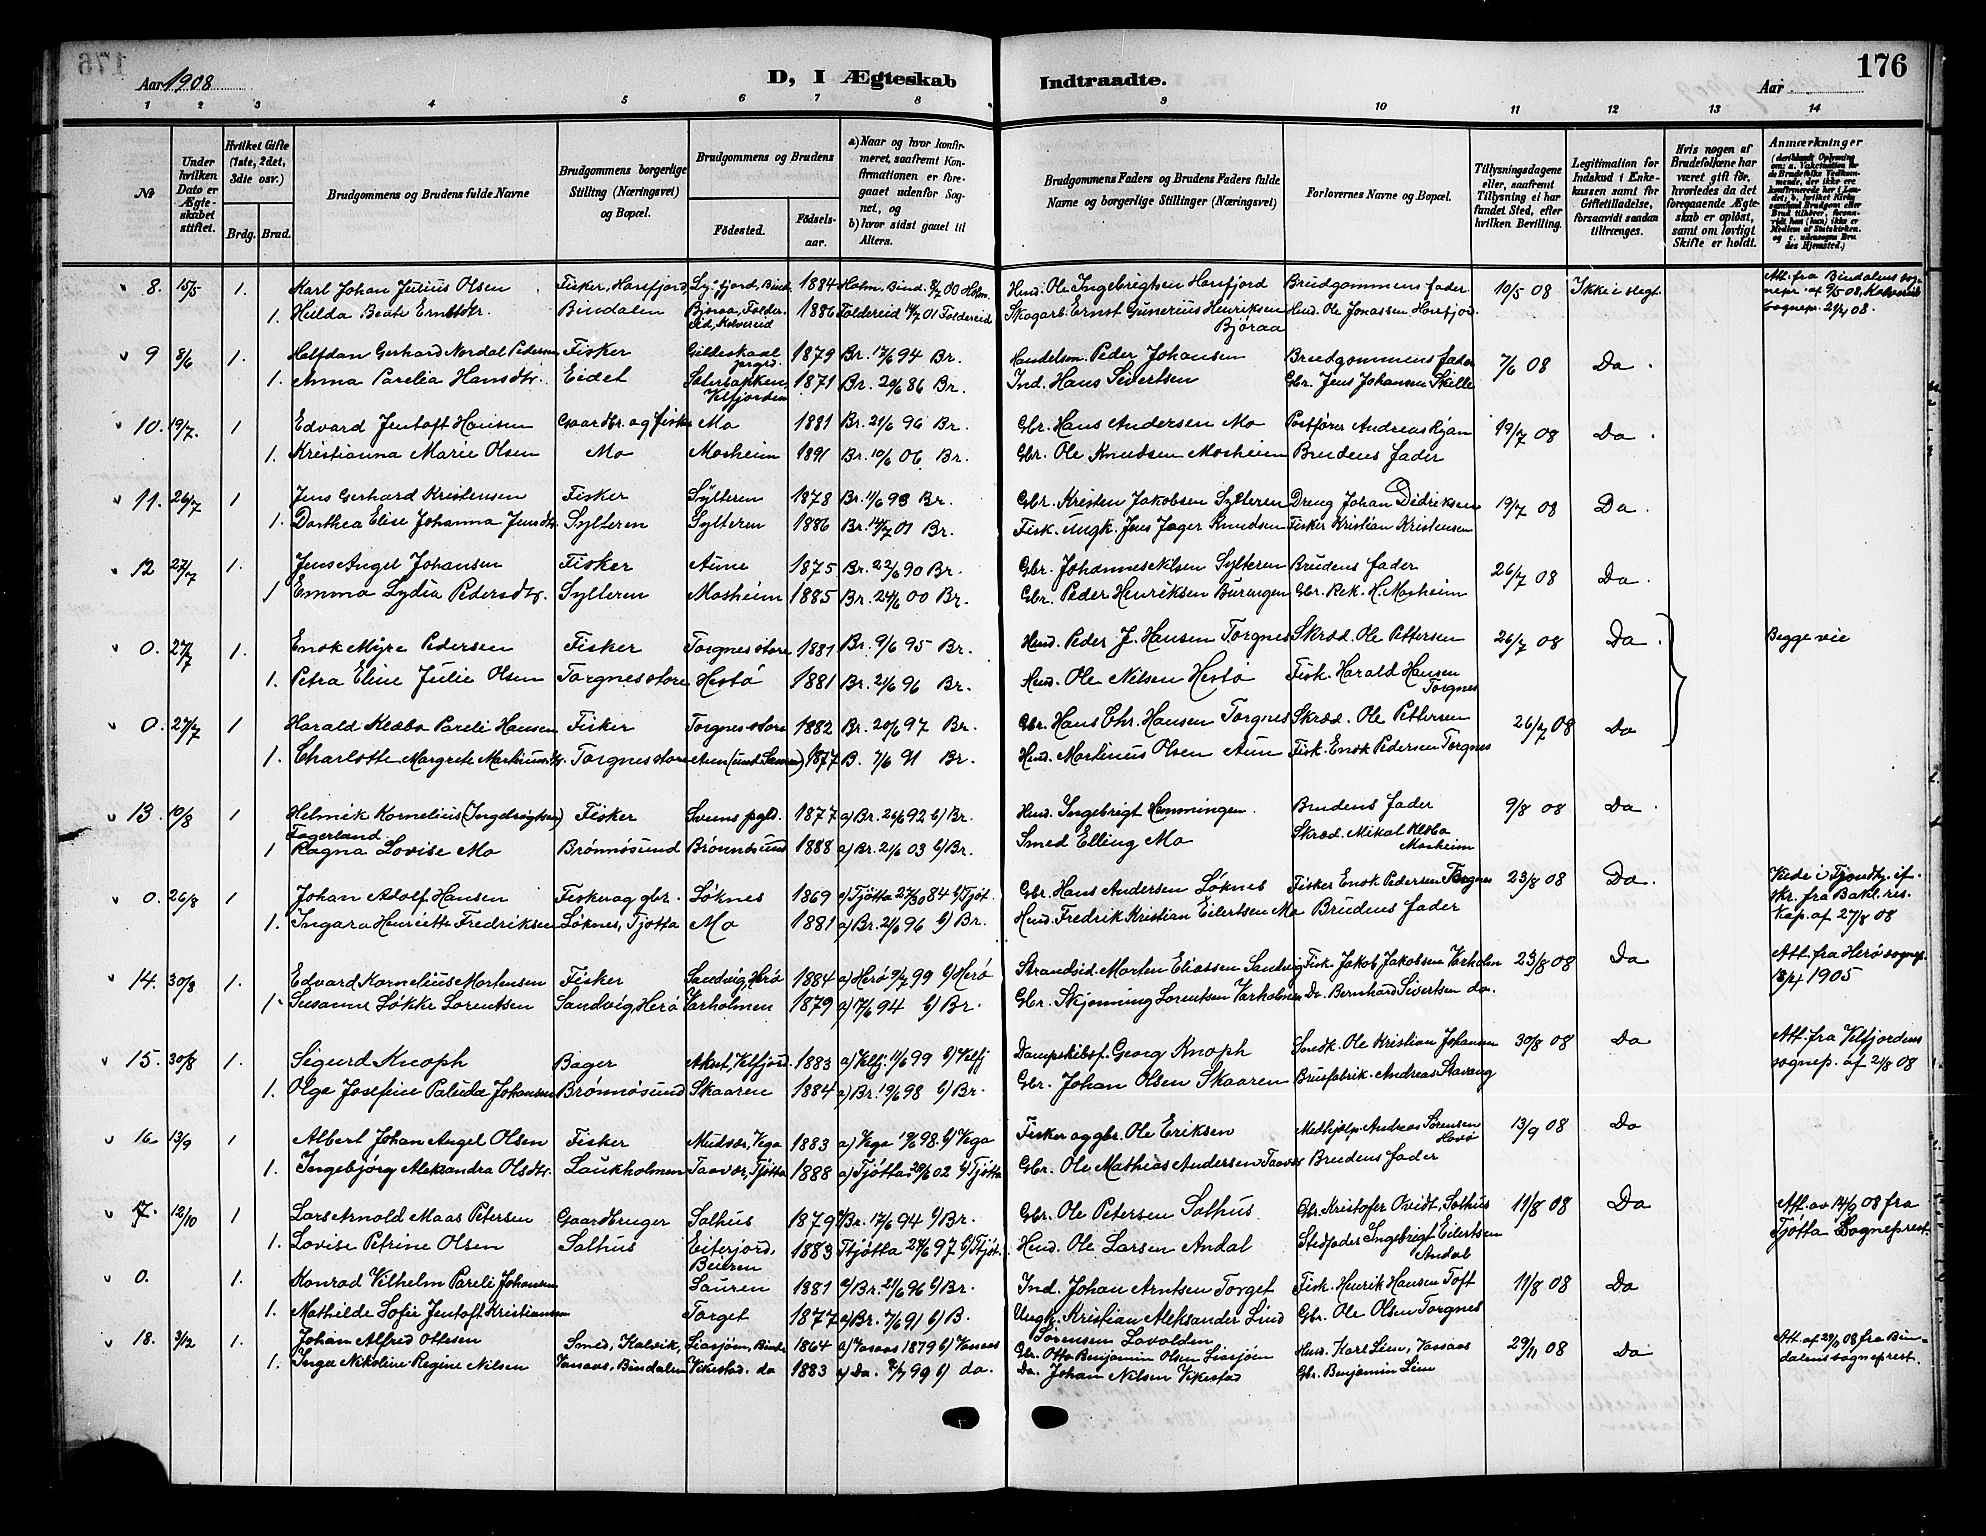 176
Aar 1908
D, I Ægteskab Indtraadte.
Aar
1 2 3 4 5 6 7 8 9 10 11 12 13 14
№
Under hvilken Dato er Ægteskabet stiftet.
Hvilket Gifte (1ste, 2det, 3die osv.)
Brdg. Brud.
Brudgommens og Brudens fulde Navne
Brudgommens borgerlige Stilling (Næringsvei) og Bopæl.
Brudgommens og Brudens
Fødested.
Fødselsaar.
a) Naar og hvor konfirmeret, saafremt Konfirmationen er foregaaet udenfor Sognet, og
b) hvor sidst gaaet til Alters.
Brudgommens Faders og Brudens Faders fulde Navne og borgerlige Stillinger (Næringsvei)
Forlovernes Navne og Bopæl.
Tillysningsdagene eller, saafremt Tillysning ei har fundet Sted, efter hvilken Bevilling.
Legitimation for Indskud i Enkekassen samt for Giftetilladelse, forsaavidt saadan tiltrænges.
Hvis nogen af Brudefolkene har været gift før, hvorledes da det foregaaende Ægteskab er opløst, samt om lovligt Skifte er holdt.
Anmærkninger
8. 15/5 1. Karl Johan Julius Olsen Fisker, Horsfjord 1884 Holm, Bind. Husd. Ole Ingebrigtsen Horsfjord Brudgommens fader 10/5 08 Ikke i slegt Att. fra Bindalens sognepr. af 9/5 08, Kolvereid sognepr. 21/4 08.
1. Hulda Beate Ernstdtr. Bindalen Bjøraa, Foldereid, Kolvereid 1886 Foldereid 14/7 01 Foldereid Skogarb. Ernst Gunerius Henriksen Bjøraa Husd. Ole Jonassen Horsfjord
9 8/6 1. Halfdan Gerhard Nordal Pedersen Fisker Gildeskaal prgjd. 1879 Br. 17/6 94 Br. Handelsm. Peder Johansen Brudgommens fader 7/6 08 Do.
1. Anna Parelia Hansdtr. Eidet Velfjorden 1871 Br. 20/6 86 Br. Ind. Hans Sivertsen Gbr. Jens Johansen Skille
10. 19/7. 1 Edvard Jentoft Hansen Gaardbr. og fisker Mo 1881 Br. 21/6 96 Br. Gbr. Hans Andersen Mo Postfører Andreas Ryan 19/7 08 Do.
1. Kristianna Marie Olsen Mo Mosheim 1891 Br. 10/6 06 Br. Gbr. Ole Knudsen Mosheim Brudens fader
11. 26/7 1 Jens Gerhard Kristensen Fisker Sylteren 1878 Br. 11/6 93 Br. Gbr. Kristen Jakobsen Sylteren Dreng Johan Didriksen 19/7 08 Do.
1. Dorthea Elise Johanna Jensdtr. Sylteren Sylteren 1886 Br. 14/7 01 Br. Fisk. ungk. Jens Jæger Knudsen Fisker Kristian Kristensen
12 27/7 1. Jens Angel Johansen Fisker Aune 1875 Br. 22/6 90 Br. Gbr. Johannes Nilsen Sylteren Brudens fader 26/7 08 Do.
1 Emma Lydia Pedersdtr. Sylteren Mosheim 1885 Br. 24/6 00 Br. Gbr. Peder Henriksen Gbr. Rek. H. Mosheim
0. 27/7 1. Enok Myre Pedersen Fisker Torgnesstore 1881 Br. 9/6 95 Br. Husd. Peder J. Hansen Torgnes Skræd. Ole Pettersen 26/7 08 Do. Begge vie
1. Petra Elise Julie Olsen Torgnesstore Hestø 1881 Br. 21/6 96 Br. Husd. Ole Nilsen Hestø Fisk. Harald Hansen Torgnes
0. 27/7 1 Harald Klæbo Pareli Hansen Fisker Torgnesstore 1882 Br. 20/6 97 Br. Gbr. Hans Chr. Hansen Torgnes Skræd. Ole Pettersen 26/7 08 Do
1. Charlotte Margrete Torgnesstore Aun 1877 B. 7/6 91 Br. Husd. Martinus Olsen Aun Fisk. Enok Pedersen Torgnes
13. 10/8 1 Helmik Kornelius (Ingebrigtsen) Fagerland Fisker Sømns pgld. 1877 a) Br. 26/6 92 b) Br. Husd. Ingebrigt Hemmingsen. Brudens fader 9/8 08 Do.
1 Ragna Lovise Mo Brønnøsund Brønnøsund 1888 a) Br. 21/6 03 b) Br. Smed Elling Mo Skræd. Mikal Klæbo Mosheim
0. 26/8 1 Johan Adolf Hansen Fisker og gbr. Løknes 1869 a) Tjøtta 84 b) Tjøt. Gbr. Hans Andersen Løknes Fisker Enok Pedersen Torgnes 23/8 08 Do. Viede i Tjøtta k. if. skr. fra af 27/8 08
1. Ingara Henriette Fredriksen Løknes, Tjøtta Mo 1881 a) Br. 21/6 96 b) Br. Husd. Fredrik Kristian Eilertsen Mo Brudens fader
14. 30/8 1. Edvard Kornelius Mortensen Fisker Sandvig, Herø 1884 a) Herø 9/7 99 b) Herø Strandsid. Morten Eliassen Sandvig Fisk. Jakob Jakobsen Varholm 23/8 08 Do Att. fra Herø sognep. 1905
1. Susanne Løkke Lorentsen Sandvig, Herø Varholmen 1879 a) 17/6 94 b) Br. Gbr. Skjønning Lorentsen Varholmen Do. Bernhard Sivertsen do.
15. 30/8 1. Sigurd Knoph Bager Velfjord 1883 a) Velfj. 11/6 99 b) Velfj Dampskibsf. Georg Knoph Snedk. Ole Kristian Johansen 30/8 08 Do Att. fra Velfjordens sognep. af 21/8 08
1. Olga Josefine Palude Johansen Brønnøsund Skaaren 1884 a) Br. 19/6 98 b) Br. Gbr. Johan Olsen Skaaren Brusfabrik. Andreas Stavang
16. 13/9 1 Albert Johan Angel Olsen Fisker Mudvær, Vega 1883 a) Vega 19/6 98. b) Vega Fisker og gbr. Ole Eriksen Medhjelp. Andreas Sørensen 13/9 08 Do
1. Ingebjørg Aleksandra Olsdtr. Laukholmen Taavær, Tjøtta 1888 a) Tjøtta 29/6 02 b) Tjøtta Gbr. Ole Mathias Andersen Taavær Brudens fader
17. 12/10 1 Lars Arnold Maas Petersen Gaardbruger Solhus 1879 Br. 17/6 94 b) Br. Gbr. Ole Petersen Solhus. Gbr. Kristofer Qvidt, Solhus 11/8 08 Do Att. av 14/9 08 fra Tjøtta Sogneprest.
1. Lovise Petrine Olsen Solhus Eiterjord, Beieren 1883 Tjøtta 97 b) Tjøt. Husd. Ole Larsen Andal Stedfader Ingebrigt Eilertsen Andal
0. 1. Konrad Vilhelm Pareli Johansen Sauren 1881 a) Br. 21/6 96 b) Br. Ind. Johan Arntsen Torget Fisk. Henrik Hansen Toft 11/8 08 Do
1. Mathilde Sofie Jentoft Kristiansen Torget 1877 a) Br. 7/6 91 b) B. Ungk. Kristian Aleksander Lind Sørensen Gbr. Ole Olsen Torgnes
18. 3/2 1. Johan Alfred Ottesen Smed, Kalvik, 1864 a) Vasaas 1879 b) Vassaas Gbr. Otto Benjamin Olsen Husd. Karl Lien, Vassaas 29/11 08 Do Att. af 29/11 08 fra Bindalens sogneprest.
1. Inga Nikoline Regine Nilsen Vassaas, Bindalen Vikestad. do 1883 a) Do. 2/7 99 b) do. Do. Johan Nilsen Vikestad Gbr. Benjamin Lien